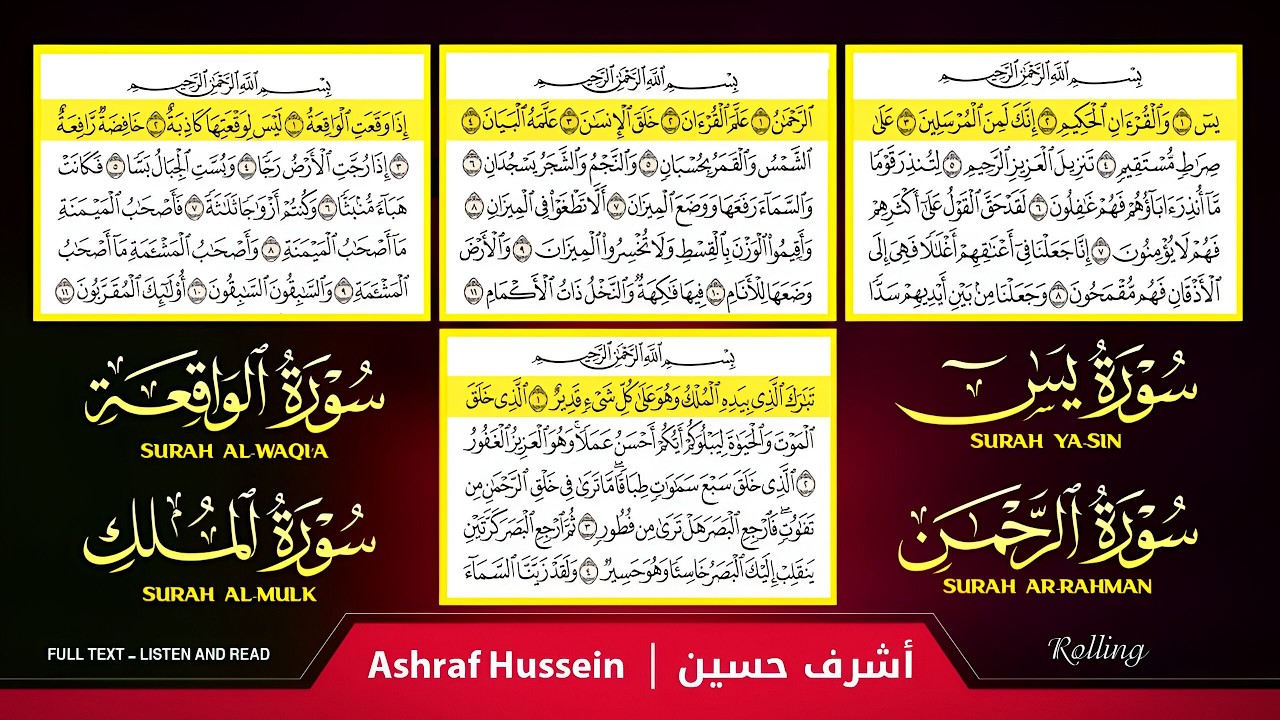 بِسْمِ ٱللَّهِ ٱلرَّحْمَٰنِ ٱلرَّحِيمِ
يسٓ ١ وَٱلْقُرْءَانِ ٱلْحَكِيمِ ٢ إِنَّكَ لَمِنَ ٱلْمُرْسَلِينَ ٣ عَلَىٰ
صِرَٰطٍ مُّسْتَقِيمٍ ٤ تَنزِيلَ ٱلْعَزِيزِ ٱلرَّحِيمِ ٥ لِتُنذِرَ قَوْمًا
مَّآ أُنذِرَ ءَابَآؤُهُمْ فَهُمْ غَٰفِلُونَ ٦ لَقَدْ حَقَّ ٱلْقَوْلُ عَلَىٰٓ أَكْثَرِهِمْ
فَهُمْ لَا يُؤْمِنُونَ ٧ إِنَّا جَعَلْنَا فِىٓ أَعْنَٰقِهِمْ أَغْلَٰلًا فَهِىَ إِلَى
ٱلْأَذْقَانِ فَهُم مُّقْمَحُونَ ٨ وَجَعَلْنَا مِنۢ بَيْنِ أَيْدِيهِمْ سَدًّا
بِسْمِ ٱللَّهِ ٱلرَّحْمَٰنِ ٱلرَّحِيمِ
ٱلرَّحْمَٰنُ ١ عَلَّمَ ٱلْقُرْءَانَ ٢ خَلَقَ ٱلْإِنسَٰنَ ٣ عَلَّمَهُ ٱلْبَيَانَ ٤
ٱلشَّمْسُ وَٱلْقَمَرُ بِحُسْبَانٍ ٥ وَٱلنَّجْمُ وَٱلشَّجَرُ يَسْجُدَانِ ٦
وَٱلسَّمَآءَ رَفَعَهَا وَوَضَعَ ٱلْمِيزَانَ ٧ أَلَّا تَطْغَوْا۟ فِى ٱلْمِيزَانِ ٨
وَأَقِيمُوا۟ ٱلْوَزْنَ بِٱلْقِسْطِ وَلَا تُخْسِرُوا۟ ٱلْمِيزَانَ ٩ وَٱلْأَرْضَ
وَضَعَهَا لِلْأَنَامِ ١٠ فِيهَا فَٰكِهَةٌ وَٱلنَّخْلُ ذَاتُ ٱلْأَكْمَامِ ١١
بِسْمِ ٱللَّهِ ٱلرَّحْمَٰنِ ٱلرَّحِيمِ
إِذَا وَقَعَتِ ٱلْوَاقِعَةُ ١ لَيْسَ لِوَقْعَتِهَا كَاذِبَةٌ ٢ خَافِضَةٌ رَّافِعَةٌ
٣ إِذَا رُجَّتِ ٱلْأَرْضُ رَجًّا ٤ وَبُسَّتِ ٱلْجِبَالُ بَسًّا ٥ فَكَانَتْ
هَبَآءً مُّنۢبَثًّا ٦ وَكُنتُمْ أَزْوَٰجًا ثَلَٰثَةً ٧ فَأَصْحَٰبُ ٱلْمَيْمَنَةِ
مَآ أَصْحَٰبُ ٱلْمَيْمَنَةِ ٨ وَأَصْحَٰبُ ٱلْمَشْـَٔمَةِ مَآ أَصْحَٰبُ
ٱلْمَشْـَٔمَةِ ٩ وَٱلسَّٰبِقُونَ ٱلسَّٰبِقُونَ ١٠ أُو۟لَٰٓئِكَ ٱلْمُقَرَّبُونَ ١١
بِسْمِ ٱللَّهِ ٱلرَّحْمَٰنِ ٱلرَّحِيمِ
تَبَٰرَكَ ٱلَّذِى بِيَدِهِ ٱلْمُلْكُ وَهُوَ عَلَىٰ كُلِّ شَىْءٍ قَدِيرٌ ١ ٱلَّذِى خَلَقَ
ٱلْمَوْتَ وَٱلْحَيَوٰةَ لِيَبْلُوَكُمْ أَيُّكُمْ أَحْسَنُ عَمَلًا ۚ وَهُوَ ٱلْعَزِيزُ ٱلْغَفُورُ
٢ ٱلَّذِى خَلَقَ سَبْعَ سَمَٰوَٰتٍ طِبَاقًا ۖ مَّا تَرَىٰ فِى خَلْقِ ٱلرَّحْمَٰنِ مِن
تَفَٰوُتٍ ۖ فَٱرْجِعِ ٱلْبَصَرَ هَلْ تَرَىٰ مِن فُطُورٍ ٣ ثُمَّ ٱرْجِعِ ٱلْبَصَرَ كَرَّتَيْنِ
يَنقَلِبْ إِلَيْكَ ٱلْبَصَرُ خَاسِئًا وَهُوَ حَسِيرٌ ٤ وَلَقَدْ زَيَّنَّا ٱلسَّمَآءَ
سُورَةُ يسٓ
SURAH YA-SIN
سُورَةُ ٱلرَّحْمَٰنِ
SURAH AR-RAHMAN
سُورَةُ ٱلْوَاقِعَةِ
SURAH AL-WAQI'A
سُورَةُ ٱلْمُلْكِ
SURAH AL-MULK
FULL TEXT – LISTEN AND READ
Ashraf Hussein | أشرف حسين
Rolling